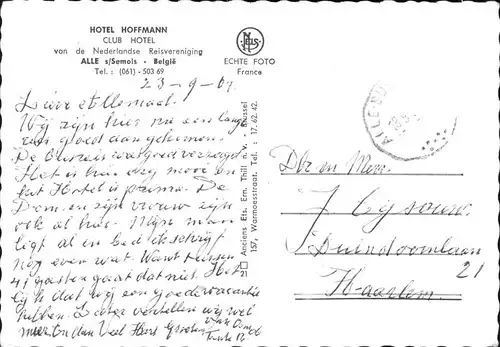 HOTEL HOFFMANN
CLUB HOTEL
van de Nederlandse Reisvereniging
ALLE s/Semois - België
Tel.: (061) - 503 69
Nels
ECHTE FOTO
France
23-9-61.
Lieve Allemaal.
Wij zijn hier na een lange
reis goed aangekomen.
De was goed verzorgd
Het is hier erg mooi en
het Hotel is prima. De
Dom. en zijn vrouw zijn
ook al hier. Mijn man
ligt al in bed ik schrijf
nog even wat. Want tussen
gasten gaat dat niet. Het
dat wij een goede vacantie
hebben. Later vertellen wij wel
meer. En dan Veel Groeten
van Oom
Tante
Anciens Ets. Ern. Thill n.v. - Brussel
157, Warmoesstraat. Tel.: 17.62.42.
ALLE
Dhr. en Mevr.
J Gysouw.
Duindoornlaan
21
Haarlem.